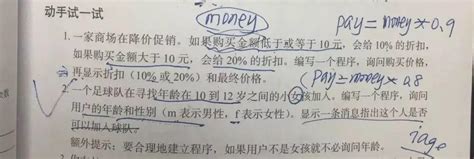 动手试一试
money
pay = money * 0.9
1. 一家商场在降价促销。如果购买金额低于或等于 10 元，会给 10% 的折扣，
如果购买金额大于 10 元，会给 20% 的折扣。编写一个程序，询问购买价格，
再显示折扣（10% 或 20%）和最终价格。
pay = money * 0.8
2. 一个足球队在寻找年龄在 10 到 12 岁之间的小女孩加入。编写一个程序，询问
用户的年龄和性别（m 表示男性，f 表示女性）。显示一条消息指出这个人是否
可以加入球队。
age
额外提示：要合理地建立程序，如果用户不是女孩就不必询问年龄。